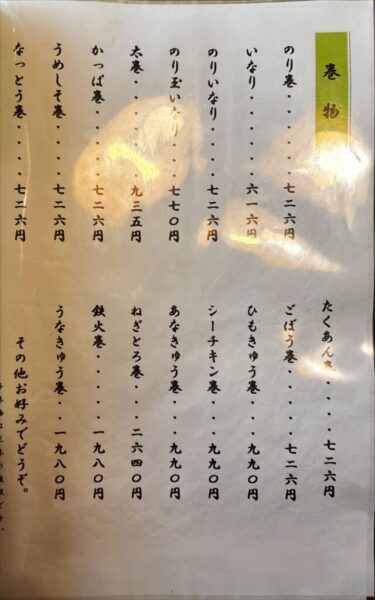 巻物
のり巻・・・・・七二六円
いなり・・・・・六一六円
のりいなり・・・・七二六円
のり玉いなり・・・七七〇円
太巻・・・・・・九三五円
かっぱ巻・・・・・七二六円
うめしそ巻・・・・七二六円
なっとう巻・・・・七二六円
たくあん巻・・・・七二六円
ごぼう巻・・・・七二六円
ひもきゅう巻・・・九九〇円
シーチキン巻・・・九九〇円
あなきゅう巻・・・九九〇円
ねぎとろ巻・・・二六四〇円
鉄火巻・・・・・一九八〇円
うなきゅう巻・・一九八〇円
その他お好みでどうぞ。